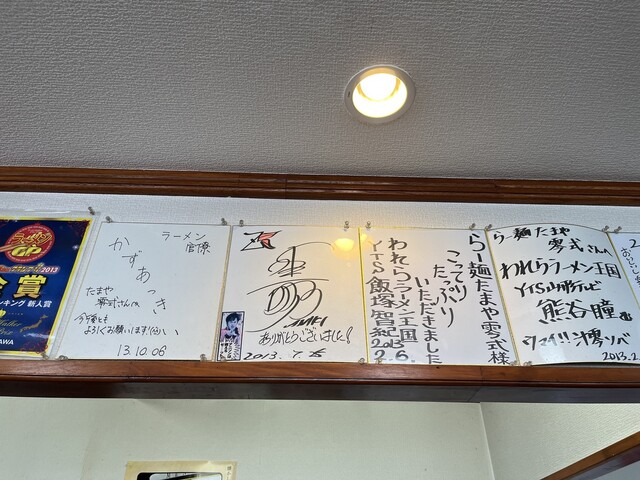 GP
2013
金賞
ンキング 新人賞
AWA
ラーメン
官僚
かずあっき
たまや
零式さん江
今後とも
よろしくお願いします
13.10.06
ありがとうございました!
2013.7.
らー麺たまや零式様
こってり
たっぷり
いただきました
われらラーメン王国
YTS飯塚智紀
2013
2.6.
らー麺 たまや
零式さん江
われらラーメン王国
YTS山形テレビ
熊谷瞳
ウマイ!!
ソバ
2013.2